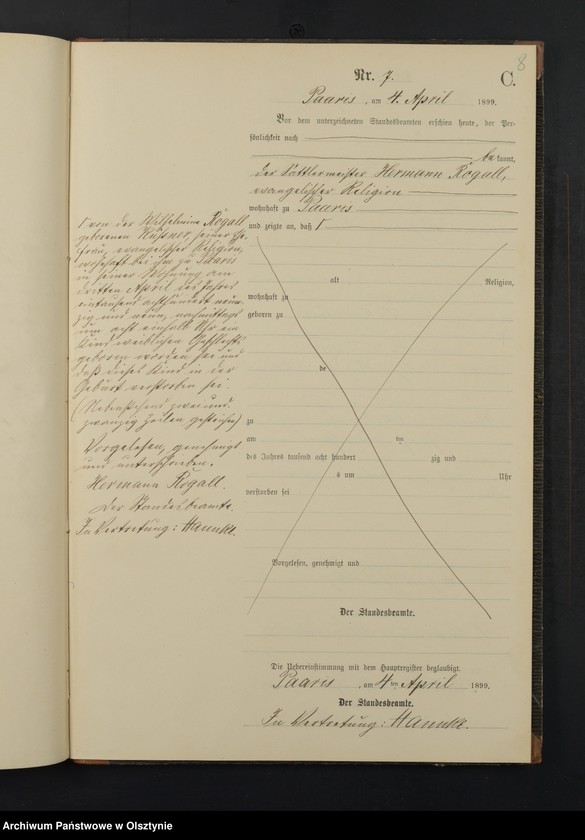 8
Nr. 7.
C.
Paaris, am 4. April 1899.
Vor dem unterzeichneten Standesbeamten erschien heute, der Per-
sönlichkeit nach
be kannt,
der Sattlermeister Hermann Rogall,
evangelischer Religion
wohnhaft zu Paaris
und zeigte an, daß Γ
Γ von der Wilhelmine Rogall
geborenen Küssner, seiner Ehe-
frau, evangelischer Religion,
wohnhaft bei ihm zu Paaris
in seiner Wohnung am
dritten April des Jahres
eintausend achthundert neun-
zig und neun, nachmittags
um acht einhalb Uhr ein
Kind weiblichen Geschlechts
geboren worden sei und
daß dieses Kind in der
Geburt verstorben sei.
(Nebenstehend zwei und
zwanzig Zeilen gestrichen)
Vorgelesen, genehmigt
und unterschrieben.
Hermann Rogall.
Der Standesbeamte.
In Vertretung: Hannke.
alt Religion,
wohnhaft zu
geboren zu
de
zu
am ten
des Jahres tausend acht hundert zig und
s um Uhr
verstorben sei
Vorgelesen, genehmigt und
Der Standesbeamte.
Die Uebereinstimmung mit dem Hauptregister beglaubigt.
Paaris, am 4 ten April 1899.
Der Standesbeamte.
In Vertretung: Hannke.
Archiwum Państwowe w Olsztynie